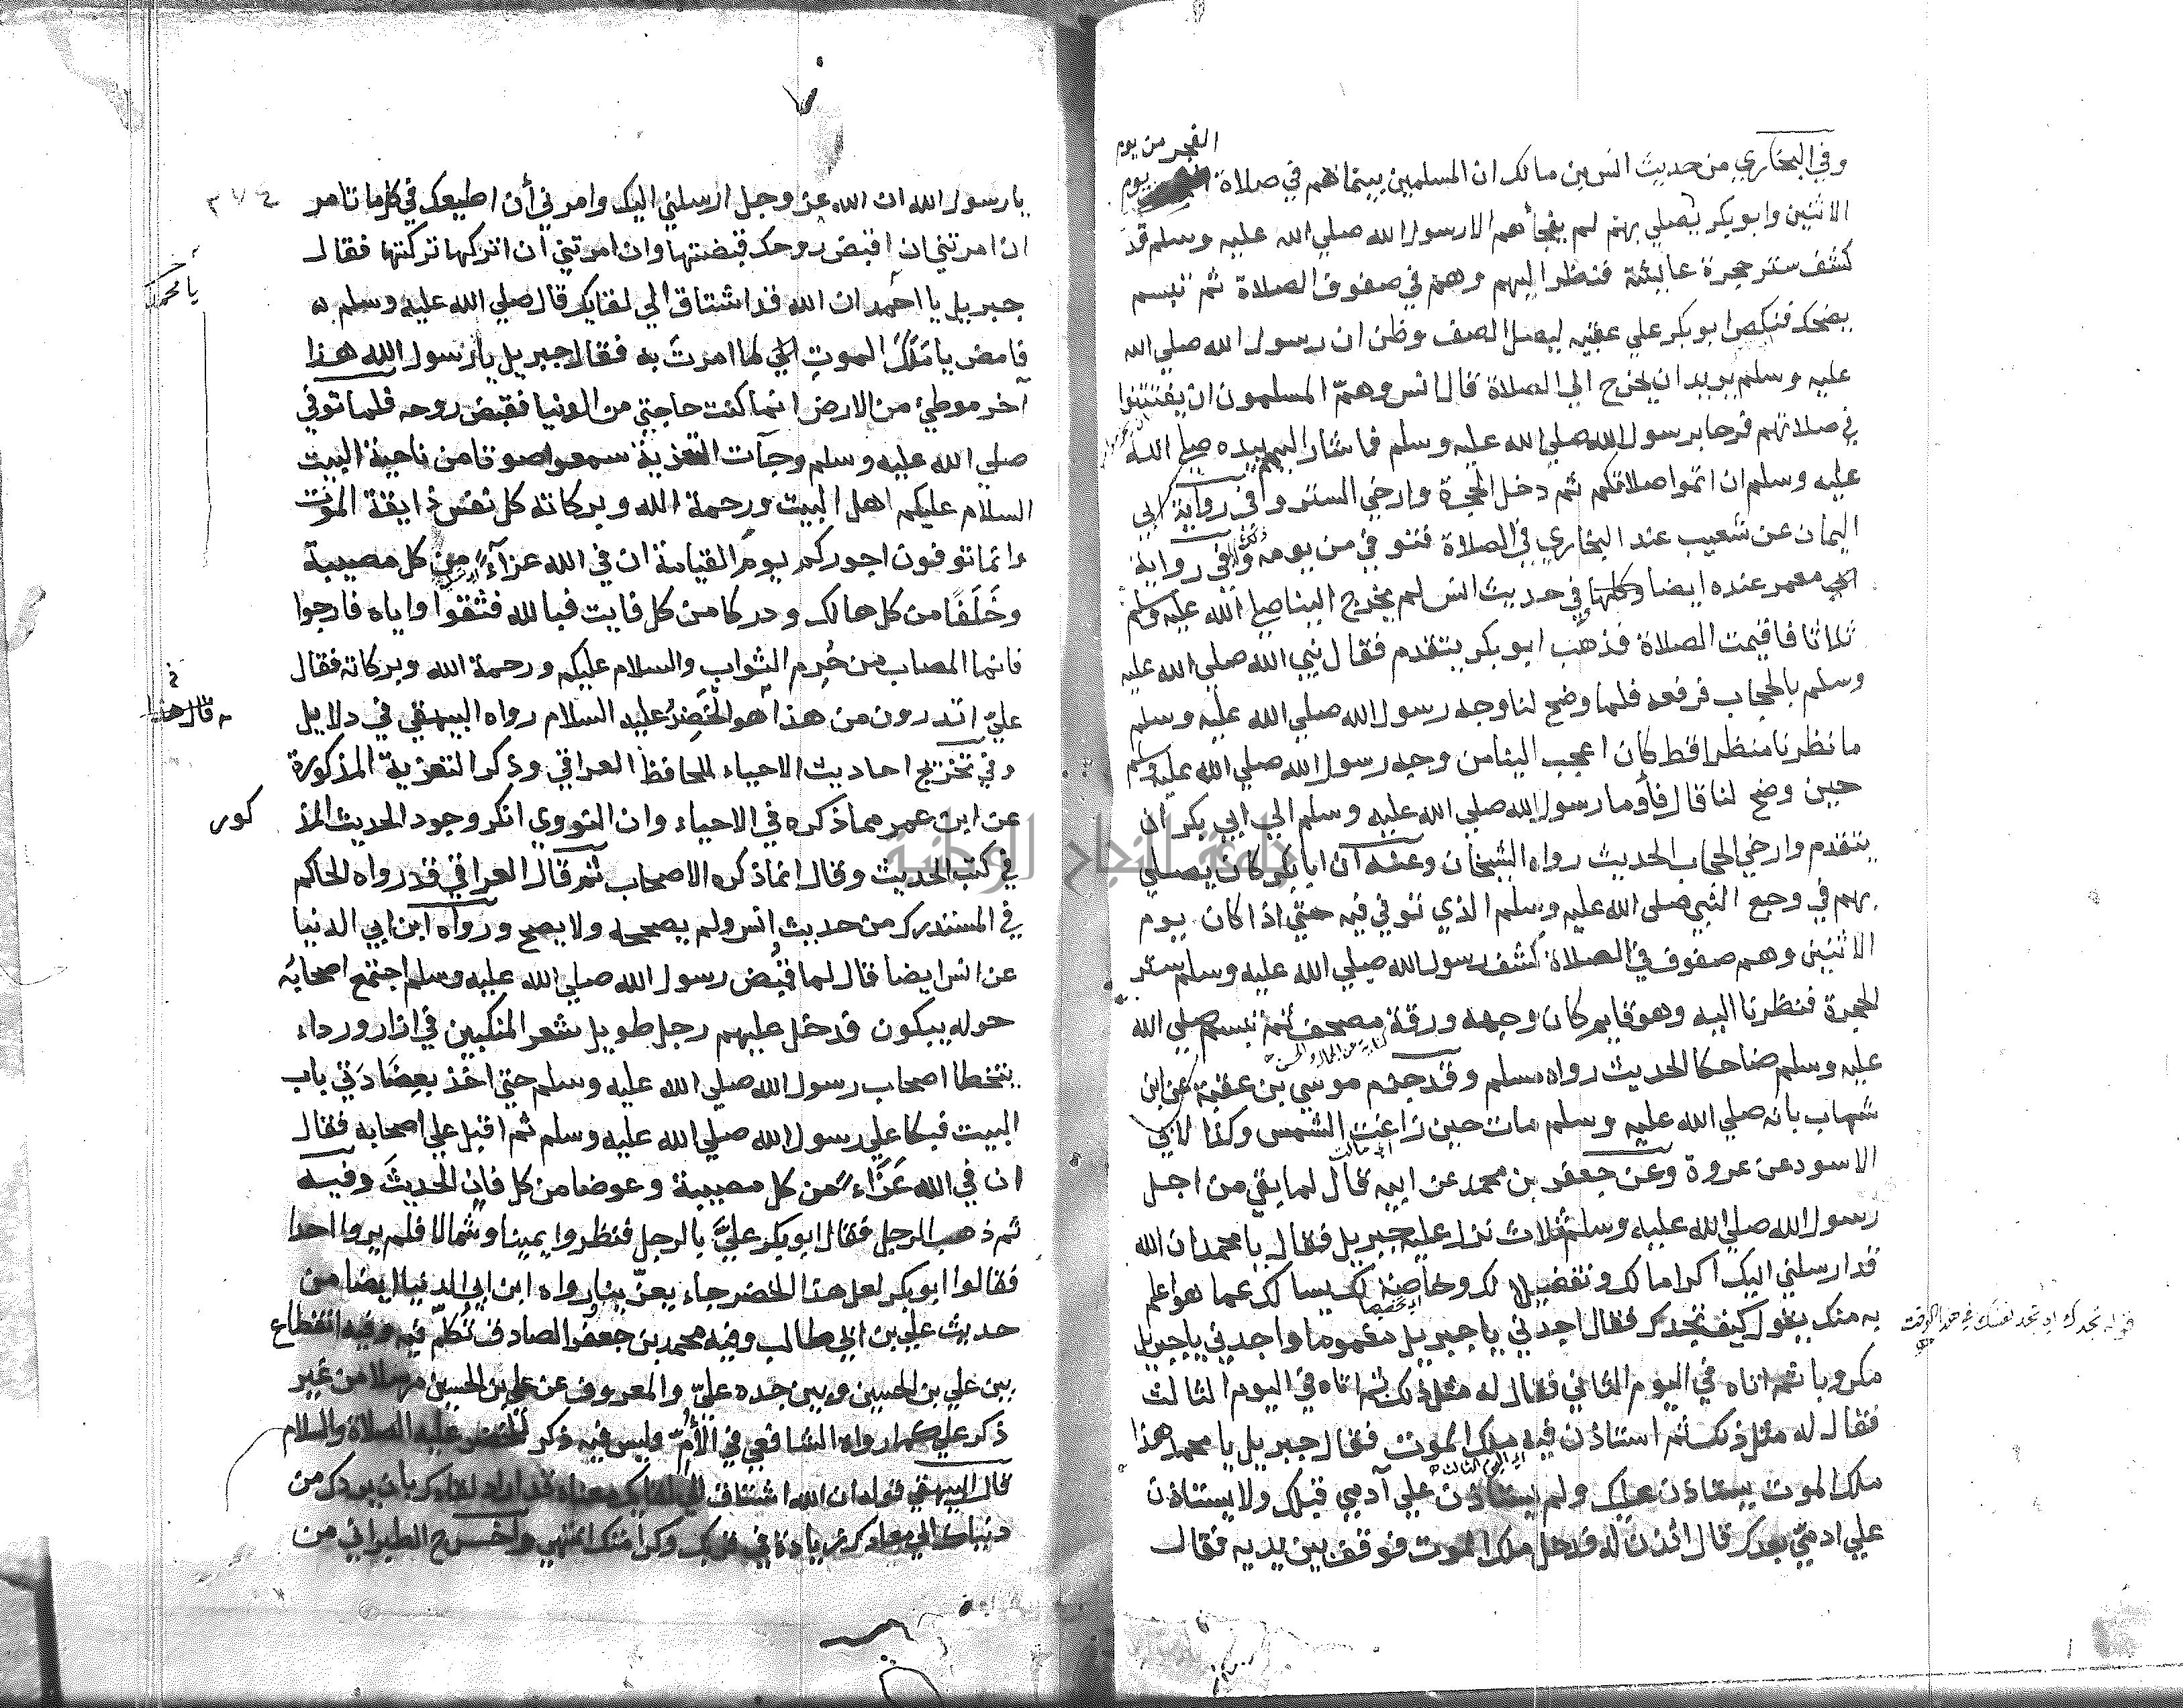 الفجر من يوم
وفي البخاري من حديث انس بن مالك ان المسلمين بينما هم في صلاة يوم
الاثنين وابو بكر يصلي بهم لم يفجأهم الا رسول الله صلي الله عليه وسلم قد
كشف ستر حجرة عايشة فنظر اليهم وهم في صفوف الصلاة ثم تبسم
يضحك فنكص ابو بكر علي عقبيه ليصل الصف وظن ان رسول الله صلي الله
عليه وسلم يريد ان يخرج الي الصلاة قال انس وهمّ المسلمون ان يفتتنوا
في صلاتهم فرحا برسول الله صلي الله عليه وسلم فاشار اليهم بيده صلي الله
عليه وسلم ان اتموا صلاتكم ثم دخل الحجرة وارخي الستر وفي رواية ابي
اليمان عن شعيب عند البخاري في الصلاة فتوفي من يومه وفي رواية
ابي معمر عنده ايضا وكلها في حديث انس لم يخرج الينا صلي الله عليه وسلم
ثلاثا فاقيمت الصلاة فذهب ابو بكر يتقدم فقال نبي الله صلي الله عليه
وسلم بالحجاب فرفعه فلما وضح لنا وجه رسول الله صلي الله عليه وسلم
ما نظرنا منظرا قط كان اعجب الينا من وجه رسول الله صلي الله عليه وسلم
حين وضح لنا قال فأوما رسول الله صلي الله عليه وسلم الي ابي بكر ان
يتقدم وارخي الحجاب الحديث رواه الشيخان وعنه ان ابا بكر كان يصلي
بهم في وجع النبي صلي الله عليه وسلم الذي توفي فيه حتي اذا كان يوم
الاثنين وهم صفوف في الصلاة كشف رسول الله صلي الله عليه وسلم ستر
الحجرة فنظرنا اليه وهو قايم كان وجهه ورقة مصحف ثم تبسم صلي الله
كناية عن الجمال والحسن
عليه وسلم ضاحكا الحديث رواه مسلم وقد جزم موسي بن عقبة عن ابن
شهاب بانه صلي الله عليه وسلم مات حين زاغت الشمس وكذا لابي
اي مالت
الاسود عن عروة وعن جعفر بن محمد عن ابيه قال لما بقي من اجل
رسول الله صلي الله عليه وسلم ثلاث نزل عليه جبريل فقال يا محمد ان الله
قد ارسلني اليك اكراما لك وتفضيلا لك وخاصة لك يسالك عما هو اعلم
به منك يقول كيف تجدك فقال اجدني يا جبريل مغموما واجدني يا جبريل
قوله تجدك اي تجد نفسك في هذا الوقت
مكروبا ثم اتاه في اليوم الثاني فقال له مثل ذلك ثم اتاه في اليوم الثالث
فقال له مثل ذلك ثم استاذن فيه ملك الموت فقال جبريل يا محمد هذا
اي اليوم الثالث
ملك الموت يستاذن عليك ولم يستاذن علي آدمي قبلك ولا يستاذن
علي ادمي بعدك قال ائذن له فدخل ملك الموت فوقف بين يديه فقال
٣٧٤
يا رسول الله ان الله عز وجل ارسلني اليك وامرني أن اطيعك في كل ما تامر
ان امرتني ان اقبض روحك قبضتها وان امرتني أن اتركها تركتها فقال
يا محمد
جبريل يا احمد ان الله قد اشتاق الي لقايك قال صلي الله عليه وسلم له
فامض يا ملك الموت لما امرت به فقال جبريل يا رسول الله هذا
آخر موطئ من الارض انما كنت حاجتي من الدنيا فقبض روحه فلما توفي
صلي الله عليه وسلم وجآت التعزية سمعوا صوتا من ناحية البيت
السلام عليكم اهل البيت ورحمة الله وبركاته كل نفس ذايقة الموت
وانما توفون اجوركم يوم القيامة ان في الله عزآءً من كل مصيبة
وخَلَفًا من كل هالك ودركا من كل فايت فبالله فثقوا واياه فارجوا
فانما المصاب من حُرم الثواب والسلام عليكم ورحمة الله وبركاته فقال
علي اتدرون من هذا هو الخَضِرُ عليه السلام رواه البيهقي في دلايل
وفي تخريج احاديث الاحياء للحافظ العراقي وذكر التعزية المذكورة
عن ابن عمر مما ذكره في الاحياء وان النووي انكر وجود الحديث المذ
كور
في كتب الحديث وقال انما ذكره الاصحاب ثم قال العراقي قد رواه الحاكم
في المستدرك من حديث انس ولم يصححه ولا يصح ورواه ابن ابي الدنيا
عن انس ايضا قال لما قُبض رسول الله صلي الله عليه وسلم اجتمع اصحابه
حوله يبكون فدخل عليهم رجل طويل شعر المنكبين في ازار ورداء
يتخطا اصحاب رسول الله صلي الله عليه وسلم حتي اخذ بعضادتي باب
البيت فبكا علي رسول الله صلي الله عليه وسلم ثم اقبل علي اصحابه فقال
ان في الله عَزَاءً من كل مصيبة وعوضا من كل فايت الحديث وفيه
ثم ذهب الرجل فقال ابو بكر عليَّ بالرجل فنظروا يمينا وشمالا فلم يروا احدا
فقال ابو بكر لعل هذا الخضر جاء يعزينا رواه ابن ابي الدنيا ايضا من
حديث علي بن ابي طالب وفيه محمد بن جعفر الصادق تُكلّم فيه وفيه انقطاع
بين علي بن الحسين وبين جده عليّ والمعروف عن علي بن الحسين مرسلا من غير
ذكر علي كما رواه الشافعي في الأُمّ وليس فيه ذكر للخضر عليه الصلاة والسلام
قال البيهقي قوله ان الله اشتاق الي لقايك معناه قد اراد لقاك بان يردك من
دنياك الي معادك زيادة في قربك وكرامتك انتهي واخرج الطبراني من
جامعة النجاح الوطنية